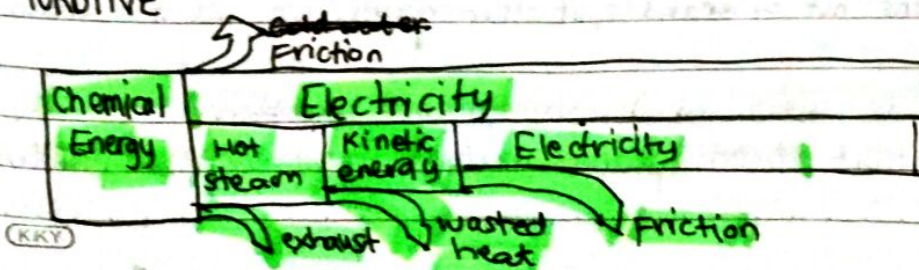 TURBINE
Friction
Chemical Energy
Electricity
Hot steam
Kinetic energy
Electricity
exhaust
wasted heat
Friction
KKY